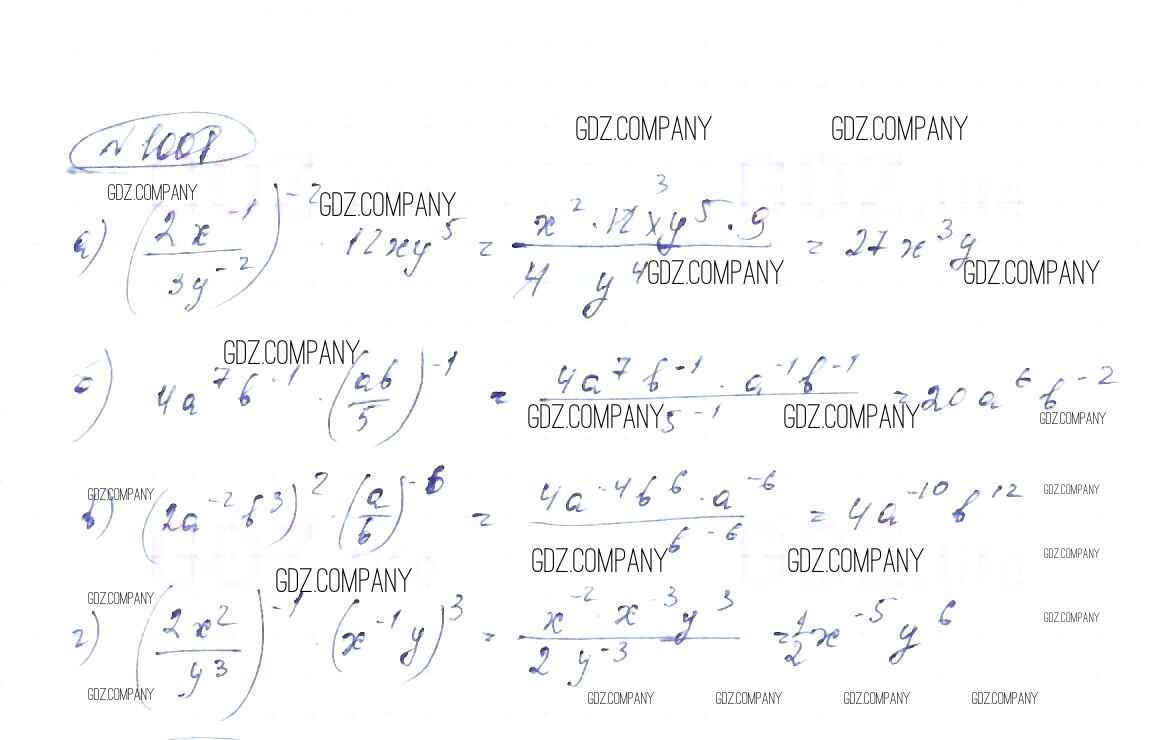 №1008
GDZ.COMPANY GDZ.COMPANY
GDZ.COMPANY GDZ.COMPANY
а) (2x⁻¹/3y⁻²)⁻² · 12xy⁵ = x² · 12xy⁵ · 9 / 4 y⁴ = 27x³y
3
GDZ.COMPANY GDZ.COMPANY
GDZ.COMPANY
б) 4a⁷b⁻¹ · (ab/5)⁻¹ = 4a⁷b⁻¹ · a⁻¹b⁻¹ / 5⁻¹ = 20a⁶b⁻²
GDZ.COMPANY GDZ.COMPANY GDZ.COMPANY
GDZ.COMPANY GDZ.COMPANY
в) (2a⁻²b³)² · (a/b)⁻⁶ = 4a⁻⁴b⁶ · a⁻⁶ / b⁻⁶ = 4a⁻¹⁰b¹²
GDZ.COMPANY GDZ.COMPANY GDZ.COMPANY
GDZ.COMPANY
GDZ.COMPANY GDZ.COMPANY
г) (2x²/y³)⁻¹ · (x⁻¹y)³ = x⁻² · x⁻³y³ / 2y⁻³ = 1/2 x⁻⁵y⁶
GDZ.COMPANY GDZ.COMPANY GDZ.COMPANY GDZ.COMPANY GDZ.COMPANY